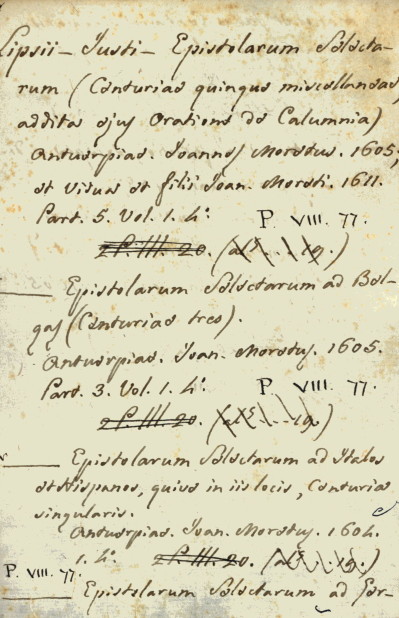 Lipsii - Justi - Epistolarum Selecta-
rum (Centuriae quinque miscellaneae,
addita ejus Oratione de Calumnia)
Antuerpiae. Joannes Moretus. 1605;
et Vidua et filii Joan. Moreti. 1611.
Part. 5. Vol. 1. 4º P. VIII. 77.
2 P. III. 20.
Epistolarum Selectarum ad Bel-
gas (Centuriae tres).
Antuerpiae. Joan. Moretus. 1605.
Part. 3. Vol. 1. 4º P. VIII. 77.
2 P. III. 20.
Epistolarum Selectarum ad Italos
et Hispanos, quive in iis locis, Centuria
singularis.
Antuerpiae. Joan. Moretus. 1604.
1. 4º 2 P. III. 20.
P. VIII. 77.
Epistolarum Selectarum ad Ger-